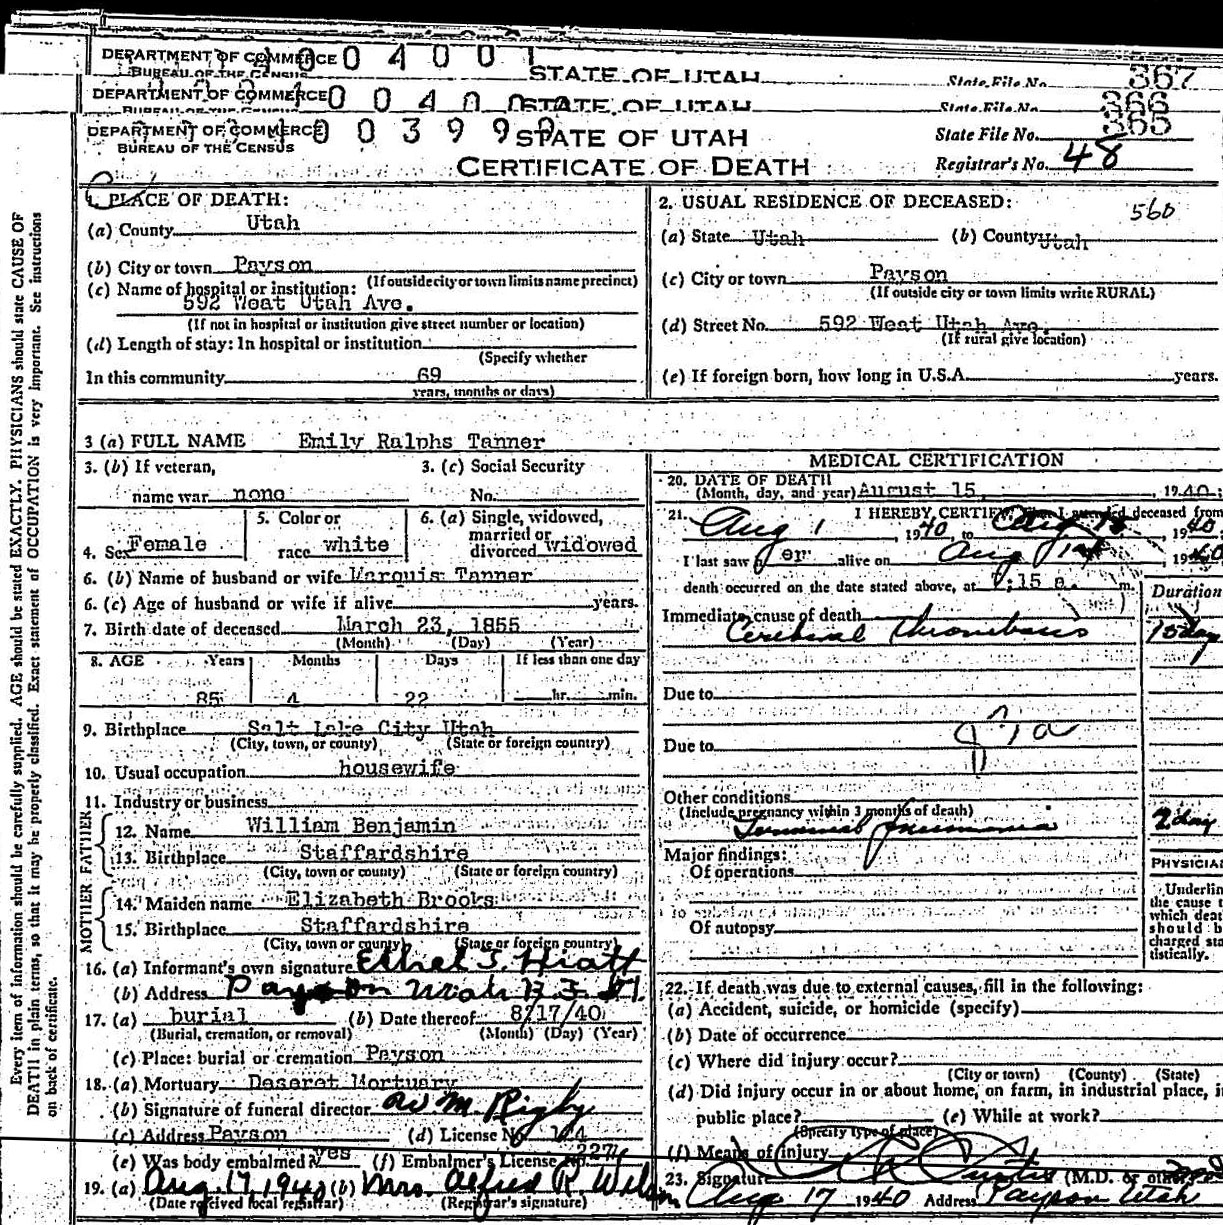 DEPARTMENT OF COMMERCE 0 4 0 0 1
BUREAU OF THE CENSUS STATE OF UTAH State File No. 367
DEPARTMENT OF COMMERCE 0 0 4 0 0 STATE OF UTAH State File No. 366
DEPARTMENT OF COMMERCE 0 0 3 9 9 9 STATE OF UTAH State File No. 365
BUREAU OF THE CENSUS
CERTIFICATE OF DEATH Registrar's No. 48
Every item of information should be carefully supplied. AGE should be stated EXACTLY. PHYSICIANS should state CAUSE OF
DEATH in plain terms, so that it may be properly classified. Exact statement of OCCUPATION is very important. See instructions
on back of certificate.
1. PLACE OF DEATH:
(a) County Utah
(b) City or town Payson
(If outside city or town limits name precinct)
(c) Name of hospital or institution:
592 West Utah Ave.
(If not in hospital or institution give street number or location)
(d) Length of stay: In hospital or institution
(Specify whether
In this community 69
years, months or days)
2. USUAL RESIDENCE OF DECEASED: 560
(a) State Utah (b) County Utah
(c) City or town Payson
(If outside city or town limits write RURAL)
(d) Street No. 592 West Utah Ave.
(If rural give location)
(e) If foreign born, how long in U.S.A. years.
3 (a) FULL NAME Emily Ralphs Tanner
3. (b) If veteran, 3. (c) Social Security
name war none No.
5. Color or 6. (a) Single, widowed,
married or
4. Sex Female race white divorced widowed
6. (b) Name of husband or wife Marquis Tanner
6. (c) Age of husband or wife if alive years.
7. Birth date of deceased March 23, 1855
(Month) (Day) (Year)
8. AGE Years Months Days If less than one day
85 4 22 hr. min.
9. Birthplace Salt Lake City Utah
(City, town, or county) (State or foreign country)
10. Usual occupation housewife
11. Industry or business
FATHER
12. Name William Benjamin
13. Birthplace Staffardshire
(City, town or county) (State or foreign country)
MOTHER
14. Maiden name Elizabeth Brooks
15. Birthplace Staffardshire
(City, town or county) (State or foreign country)
16. (a) Informant's own signature Ethel T. Hiatt
(b) Address Payson Utah
17. (a) burial (b) Date thereof 8/17/40
(Burial, cremation, or removal) (Month) (Day) (Year)
(c) Place: burial or cremation Payson
18. (a) Mortuary Deseret Mortuary
(b) Signature of funeral director W. M. Rigby
(c) Address Payson (d) License No.
(e) Was body embalmed? yes (f) Embalmer's License No. 227
19. (a) Aug. 17 1940 (b) Mrs. Alfred R Wilson
(Date received local registrar) (Registrar's signature)
MEDICAL CERTIFICATION
20. DATE OF DEATH
(Month, day, and year) August 15, 1940
21. I HEREBY CERTIFY, That I attended deceased from
Aug 1, 1940, to Aug 15, 1940
I last saw her alive on Aug 14 1940
death occurred on the date stated above, at :15 a. m.
Duration
Immediate cause of death
Cerebral Thrombosis 15 days
Due to
Due to
Other conditions
(Include pregnancy within 3 months of death)
Terminal Pneumonia 2 day
Major findings:
Of operations
Of autopsy
PHYSICIAN
Underlin
the cause t
which deat
should b
charged sta
tistically.
22. If death was due to external causes, fill in the following:
(a) Accident, suicide, or homicide (specify)
(b) Date of occurrence
(c) Where did injury occur?
(City or town) (County) (State)
(d) Did injury occur in or about home, on farm, in industrial place, i
public place? (e) While at work?
(Specify type of place)
(f) Means of injury
23. Signature Curtis (M.D. or other)
Aug 17 1940 Address Payson Utah